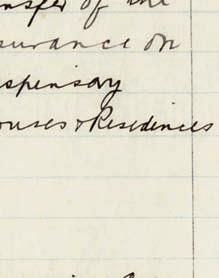 nsfer of the
surance on
spensary
ouses & Residences